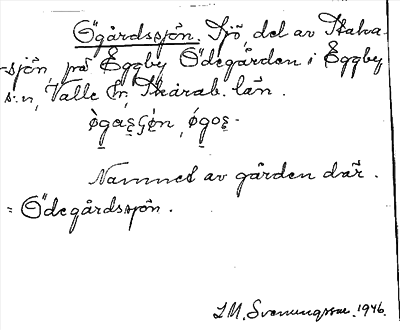 Ögårdssjön. Sjö, del av Skärva-
sjön, på Eggby Ödegården i Eggby
s:n, Valle hd, Skarab. län.
Namnet av gården där.
= Ödegårdssjön.
S.M. Svenungsson. 1946.